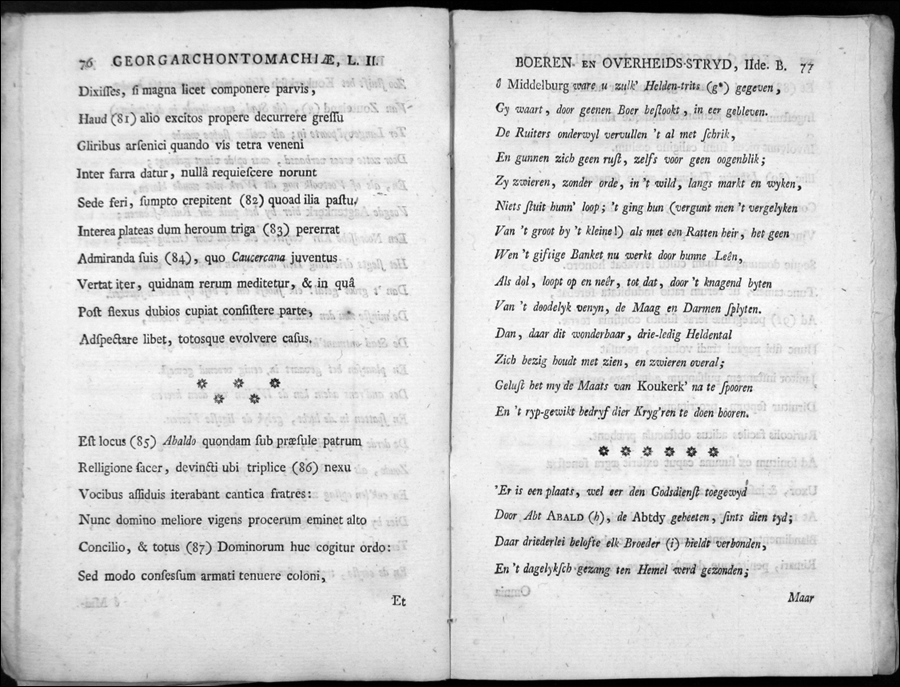 76 GEORGARCHONTOMACHIÆ, L. II.
Dixiſſes, ſi magna licet componere parvis,
Haud (81) alio excitos propere decurrere greſſu
Gliribus arſenici quando vis tetra veneni
Inter farra datur, nullâ requieſcere norunt
Sede feri, ſumpto crepitent (82) quoad ilia paſtu.
Interea plateas dum heroum triga (83) pererrat
Admiranda ſuis (84), quo Caucercana juventus
Vertat iter, quidnam rerum meditetur, & in quâ
Poſt flexus dubios cupiat conſiſtere parte,
Adſpectare libet, totosque evolvere caſus.
Eſt locus (85) Abaldo quondam ſub præſule patrum
Relligione ſacer, devincti ubi triplice (86) nexu
Vocibus aſſiduis iterabant cantica fratres:
Nunc domino meliore vigens procerum eminet alto
Concilio, & totus (87) Dominorum huc cogitur ordo:
Sed modo confesſum armati tenuere coloni,
Et
BOEREN- EN OVERHEIDS-STRYD, IIde. B. 77
ô Middelburg ware u zulk' Helden-trits (g*) gegeven,
Gy waart, door geenen Boer beſtookt, in eer gebleven.
De Ruiters onderwyl vervullen 't al met ſchrik,
En gunnen zich geen ruſt, zelfs voor geen oogenblik;
Zy zwieren, zonder orde, in 't wild, langs markt en wyken,
Niets ſtuit hunn' loop; 't ging hun (vergunt men 't vergelyken
Van 't groot by 't kleine!) als met een Ratten heir, het geen
Wen 't giftige Banket nu werkt door hunne Leên,
Als dol, loopt op en neêr, tot dat, door 't knagend byten
Van 't doodelyk venyn, de Maag en Darmen ſplyten.
Dan, daar dit wonderbaar, drie-ledig Heldental
Zich bezig houdt met zien, en zwieren overal;
Geluſt het my de Maats van Koukerk' na te ſpooren
En 't ryp-gewikt bedryf dier Kryg'ren te doen hooren.
'Er is een plaats, wel eer den Godsdienſt toegewyd
Door Abt ABALD (h), de Abtdy geheeten, ſints dien tyd;
Daar driederlei belofte elk Broeder (i) hieldt verbonden,
En 't dagelykſch gezang ten Hemel werd gezonden;
Maar